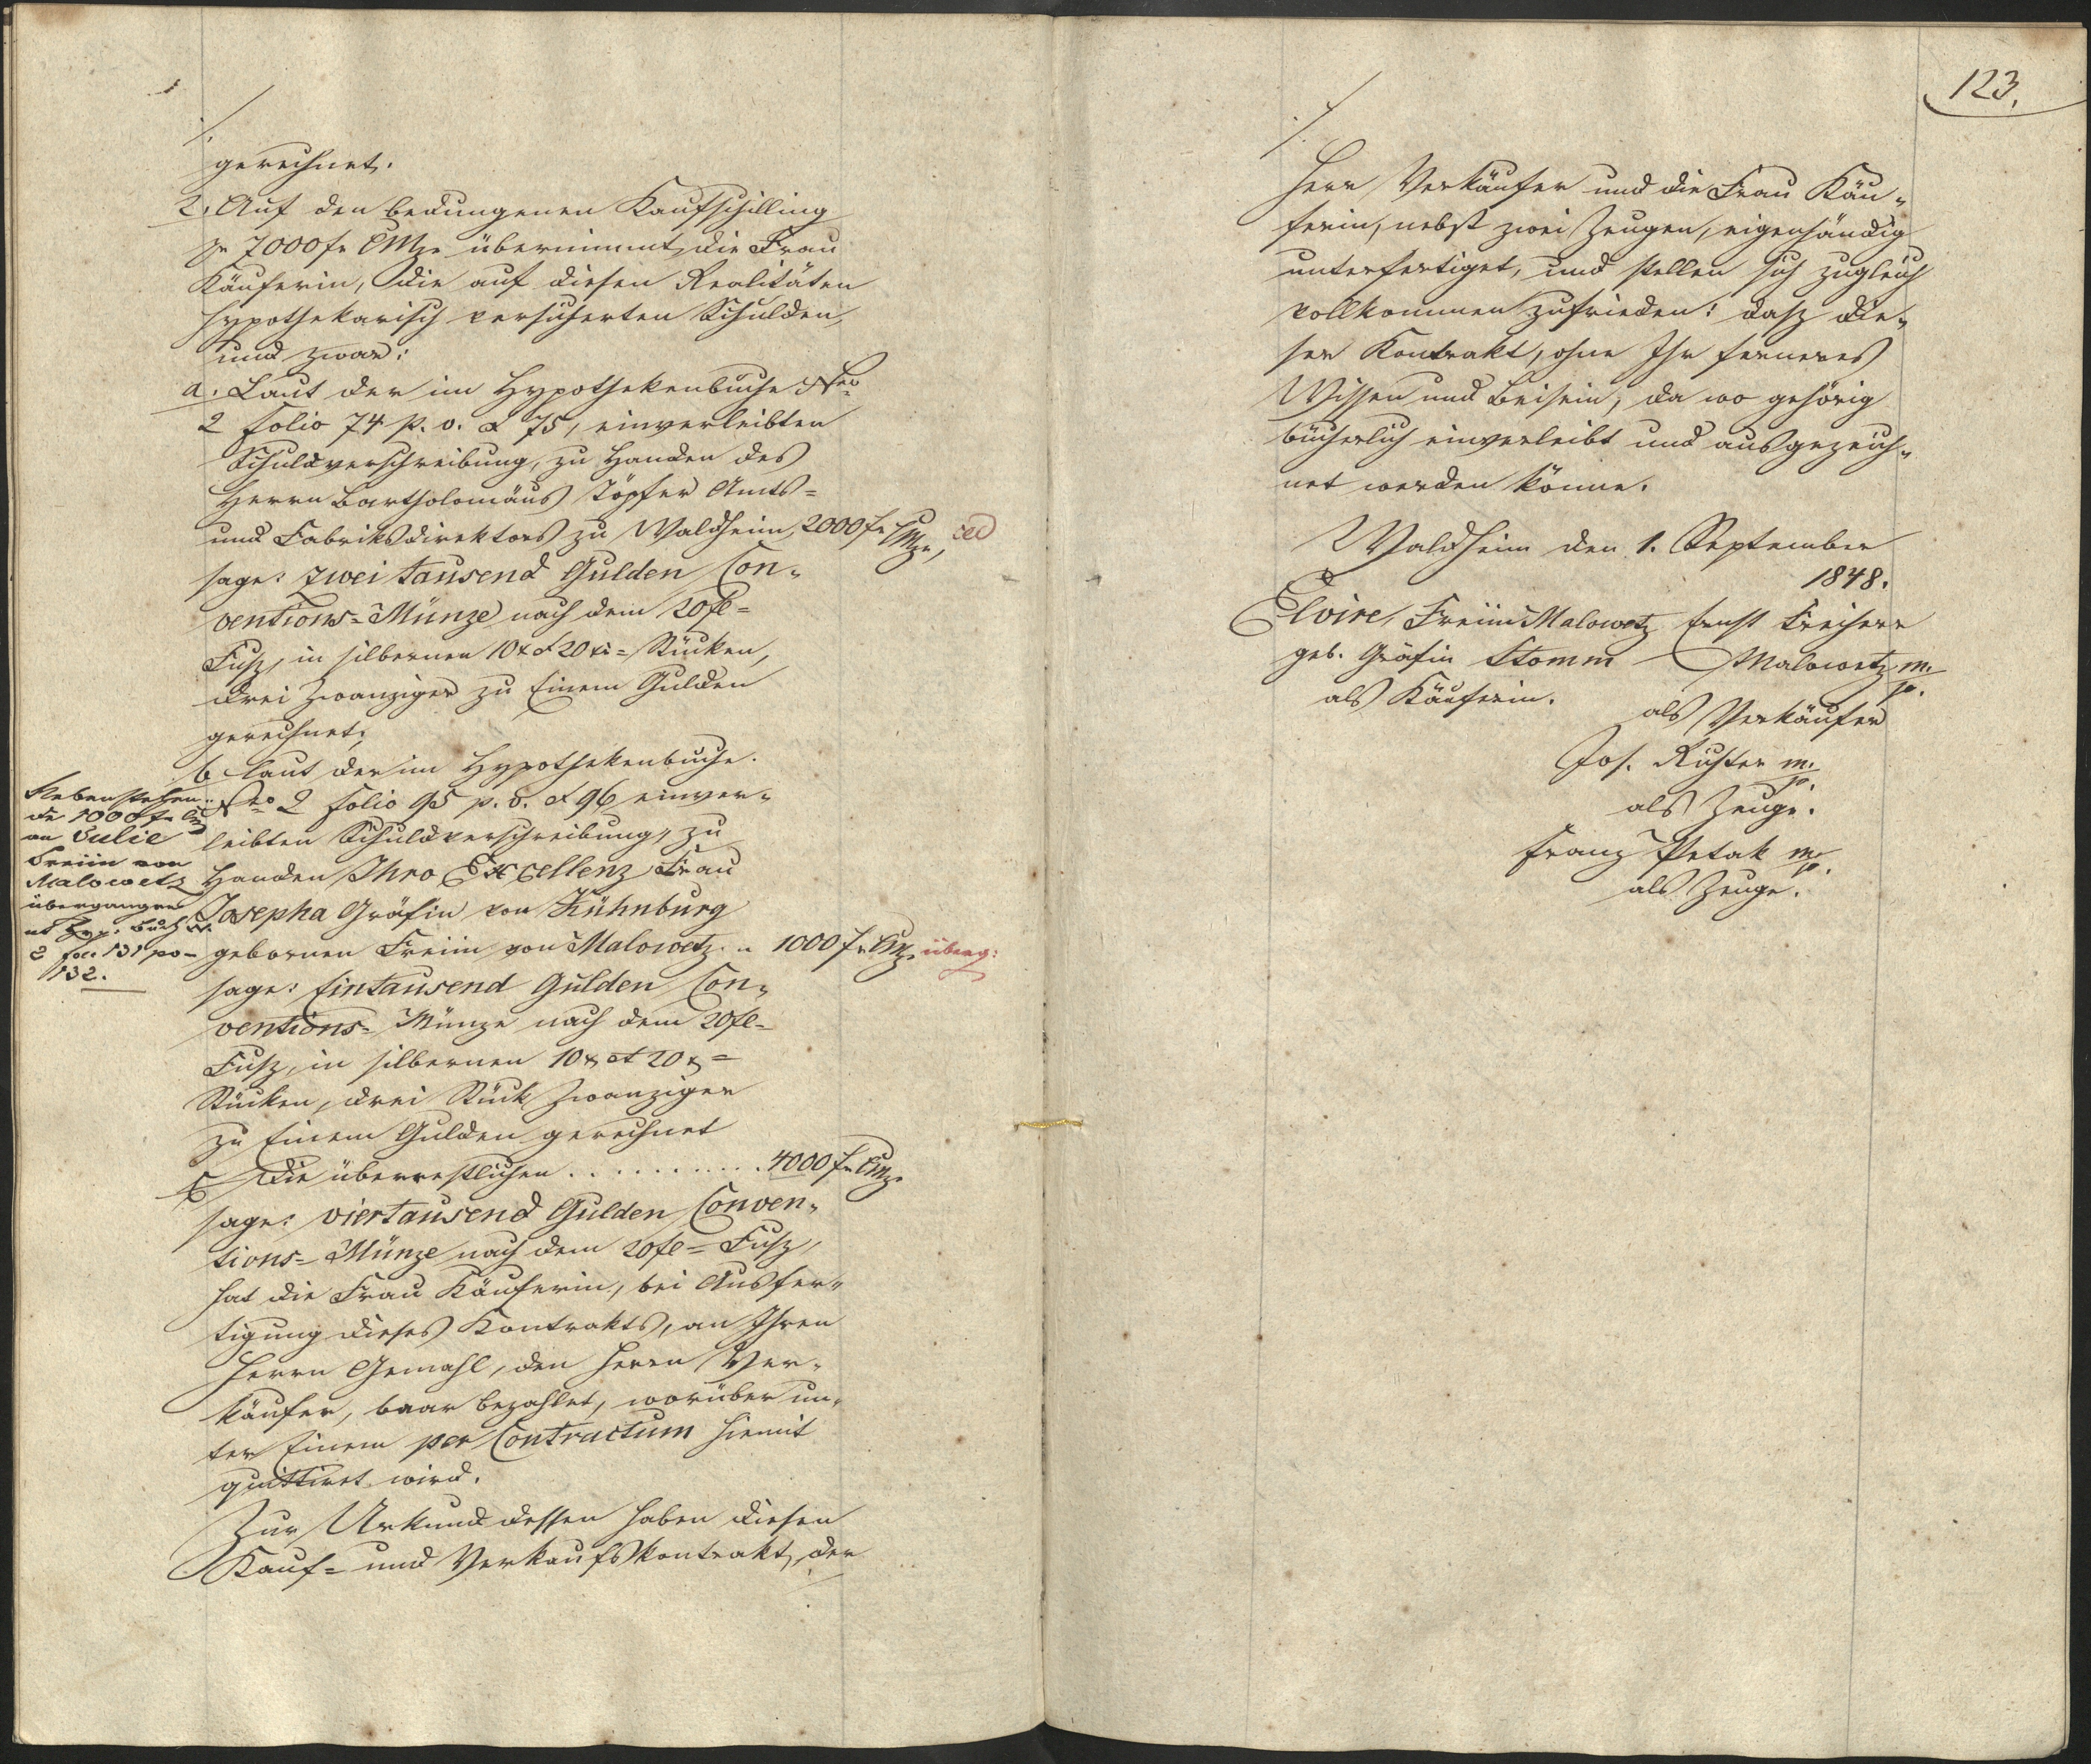 gerechnet.
2. Auf den bedungenen Kaufschilling
pr 7000 fr CMze übernimmt die Frau
Käuferin, die auf diesen Realitäten
hypothekarisch versicherten Schulden,
und zwar:
a. Laut der im Hypothekenbuche Nro
2 Folio 74 p. v. & 75, einverleibten
Schuldverschreibung, zu Handen des
Herrn Bartholomäus Töpfer Amts=
und Fabriksdirektors zu Waldheim, 2000 fr CMze,
sage: zwei tausend Gulden Con„
ventions=Münze nach dem 20 fl=
Fusz, in silbernen 10 x & 20 xr=Stücken,
drei Zwanziger zu Einem Gulden
gerechnet;
b Laut der im Hypothekenbuche
Nro 2 Folio 95 p. v. & 96 einver„
leibten Schuldverschreibung, zu
Handen Ihro Excellenz Frau
Josepha Gräfin von Kühnburg
gebornen Freiin von Malowetz „ 1000 fr CMze überg:
sage: Eintausend Gulden Con„
ventions=Münze nach dem 20 fl=
Fusz, in silbernen 10 x et 20 x=
Stücken, drei Stück Zwanziger
zu Einem Gulden gerechnet
c Die überrestlichen . . . . . . . . . . . 4000 fr CMze
sage: viertausend Gulden Conven„
tions=Münze nach dem 20 fl=Fusz,
hat die Frau Käuferin, bei Ausfer„
tigung dieses Kontrakts, an Ihren
Herrn Gemahl, den Herrn Ver„
käufer, baar bezahlet, worüber un„
ter Einem per Contractum hiemit
quittiret wird.
Zur Urkund dessen haben diesen
Kauf= und Verkaufskontrakt, der
Nebenstehen„
de 1000 fr
an Julie
Freiin von
Malowetz
übergangen
ut Hyp. Buch N.
2 fol. 131 po
132.
123.
Herr Verkäufer und die Frau Käu„
ferin, nebst zwei Zeugen, eigenhändig
unterfertiget, und stellen sich zugleich
vollkommen zufrieden: dasz die„
ser Kontrakt, ohne Ihr ferneres
Wissen und Beisein, da wo gehörig
bücherlich einverleibt und ausgezeich„
net werden könne.
Waldheim den 1. September
1848.
Elvire, Freiin Malowetz Ernst Freiherr
geb. Gräfin Stomm Malowetz m.
p.
als Käuferin. als Verkäufer
Jos. Richter m.
p.
als Zeuge.
Franz Petak m.
p.
als Zeuge.